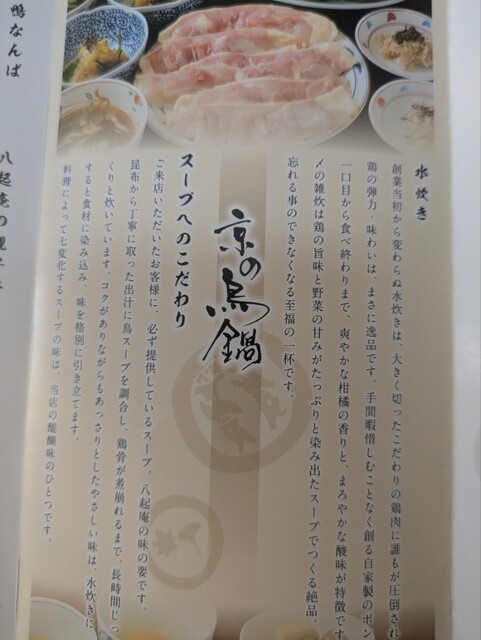 水炊き
創業当初から変わらぬ水炊きは、大きく切ったこだわりの鶏肉に誰もが圧倒され
鶏の弾力・味わいは、まさに逸品です。手間暇惜しむことなく創る自家製のポン
一口目から食べ終わりまで、爽やかな柑橘の香りと、まろやかな酸味が特徴です
〆の雑炊は鶏の旨味と野菜の甘みがたっぷりと染み出たスープでつくる絶品。
忘れる事のできなくなる至福の一杯です。
京の鳥鍋
スープへのこだわり
ご来店いただいたお客様に、必ず提供しているスープ。八起庵の味の要です。
昆布から丁寧に取った出汁に鳥スープを調合し、鶏骨が煮崩れるまで、長時間じっ
くりと炊いています。コクがありながらもあっさりとしたやさしい味は、水炊きに
すると食材に染み込み、味を格別に引き立てます。
料理によって七変化するスープの味は、当店の醍醐味のひとつです。
鴨なんば
八起庵の